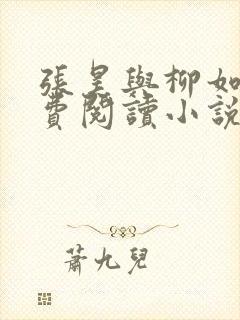 張昊與柳如
費閱讀小說
蕭九兒